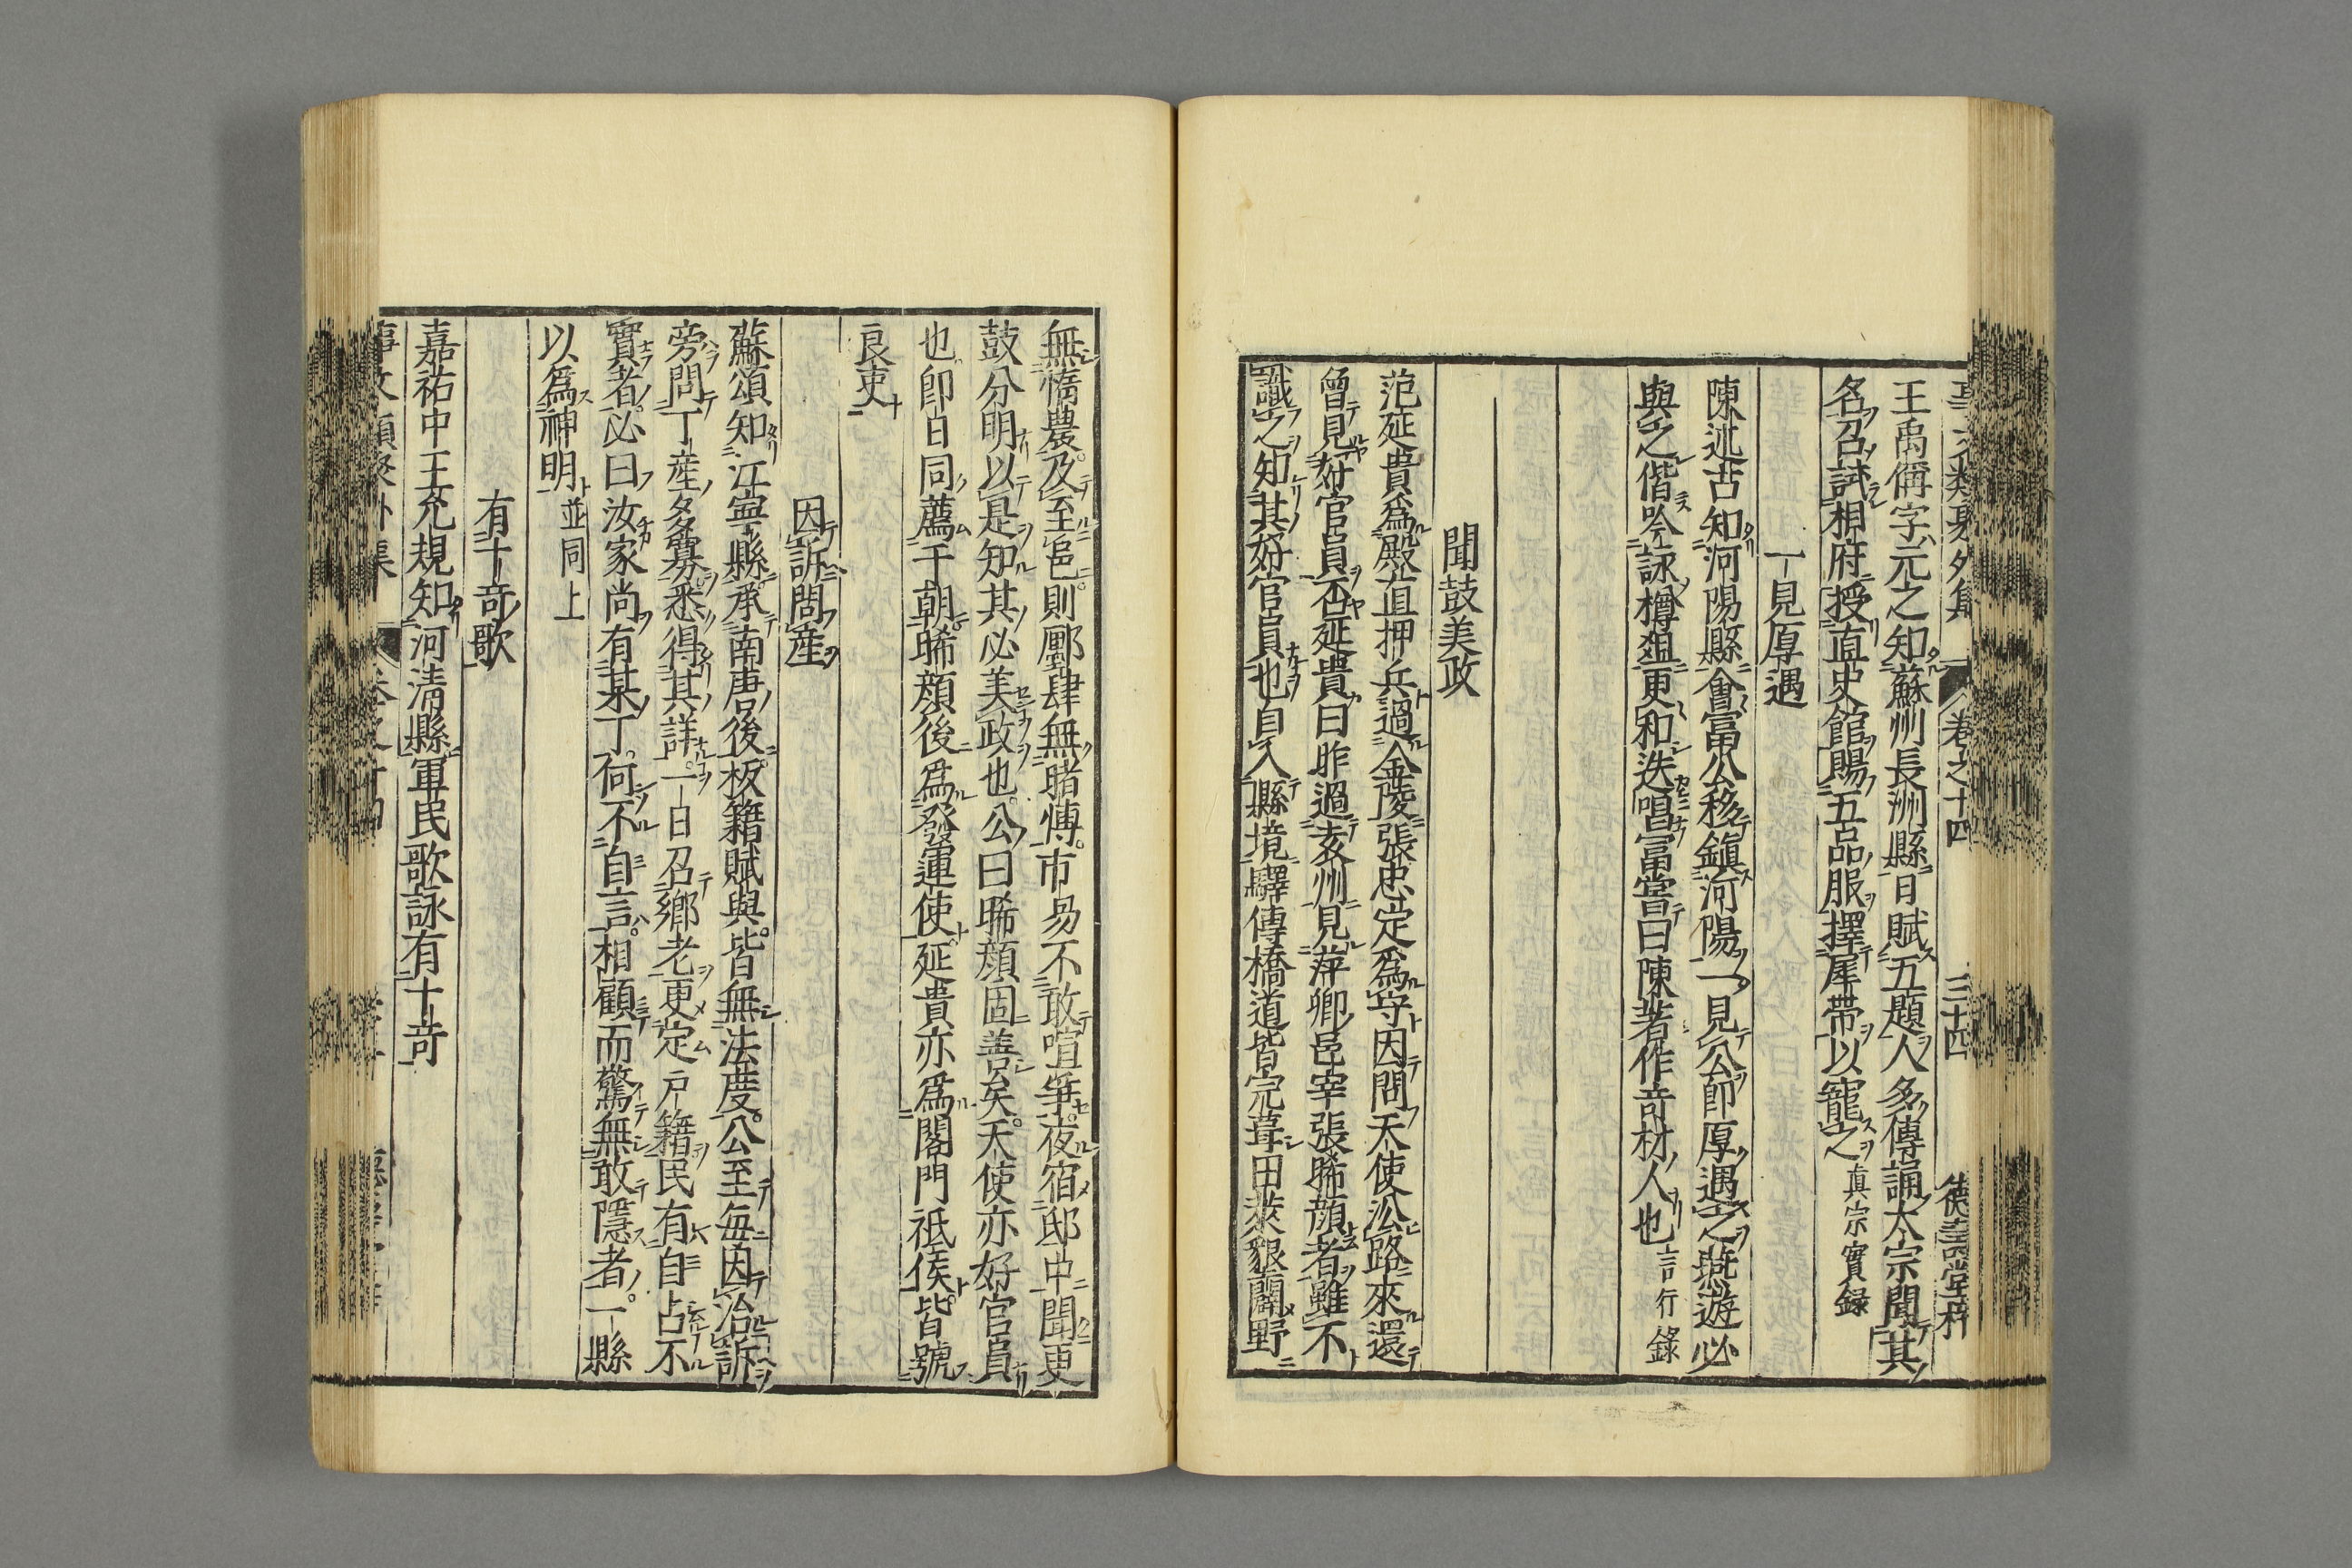 事文類聚外集 卷之十四 三十四 德壽堂梓
王禹偁字元之知蘇州長洲縣日賦五題人多傳誦太宗聞其
名召試相府授直史館賜五品服擇犀帶以寵之真宗實録
一見厚遇
陳述古知河陽縣會富公移鎮河陽一見公即厚遇之燕遊必
與之偕吟詠樽爼更和迭唱富嘗曰陳著作竒材人也言行錄
聞鼓美政
范延貴爲殿直押兵過金陵張忠定爲守因問天使㳂路來還
曾見好官員否延貴曰昨過袁州見萍鄉邑宰張晞顔者雖不
識之知其好官員也自入縣境驛傳橋道皆完葺田萊墾闢野
無惰農及至邑則鄽肆無賭慱市易不敢喧爭夜宿邸中聞更
鼓分明以是知其必美政也公曰晞顔固善矣天使亦好官員
也即日同薦于朝晞顔後爲發運使延貴亦爲閣門祗候皆號
良吏
因訴問産
蘇頌知江寧縣承南唐後板籍賦輿皆無法度公至每因治訴
旁問丁産多寡悉得其詳一日召鄉老更定戸籍民有自占不
實者必曰汝家尚有某丁何不自言相顧而驚無敢隱者一縣
以爲神明並同上
有十竒歌
嘉祐中王允規知河清縣軍民歌詠有十竒